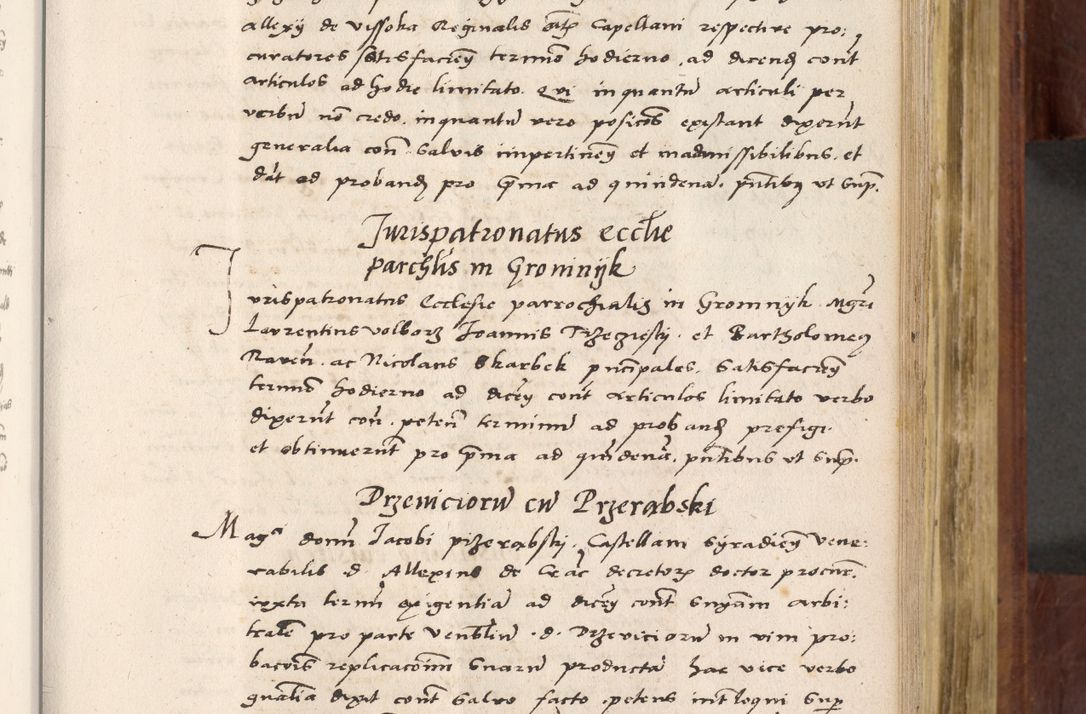 allexij de Vissoka Reginalis Capellani respective pro:
curatores satisfacieñ termino hodierno, ad dicend cont
articulos ad hodie limitato. Qui inquantu articuli per
verbu nō credo. inquantu vero existant dixerūt
generalia coñ salvis impertineñ et inadmissibilibus. et
dāt ad proband pro prima ad quindena. pñtibus ut supra.
Jurispatronatus ecclie
parchlis in Grominijk
Jurispatronatus Ecclesie parrochialis in Gromnijk Mgri
Laurentius Volborz Joannis et Bartholomeg
ac Nicolaus Skarbek pncipales. satisfacieñ
termio hodierno ad diceñ cont articulos limitato verbo
dixerūt coñ. peteñ terminū ad proband prefigi.
et obtinuerūt pro prima ad quidena. pñtibus ut supra.
Drzeviciorū cū Przerabski
Mag: domi Jacobi przerabskij. Castellani Syradieñ Vene:
rabilis d. Allexius de decretorz doctor procur.
iuxta termi exigentiā ad diceñ cont snyam arbi:
trale pro parte Venblium. d. Drzeviciorū in vim pro:
bacois replicacoim suarū producta hac vice verbo
gnalia dixit cont salvo facto. petens intloqui sup